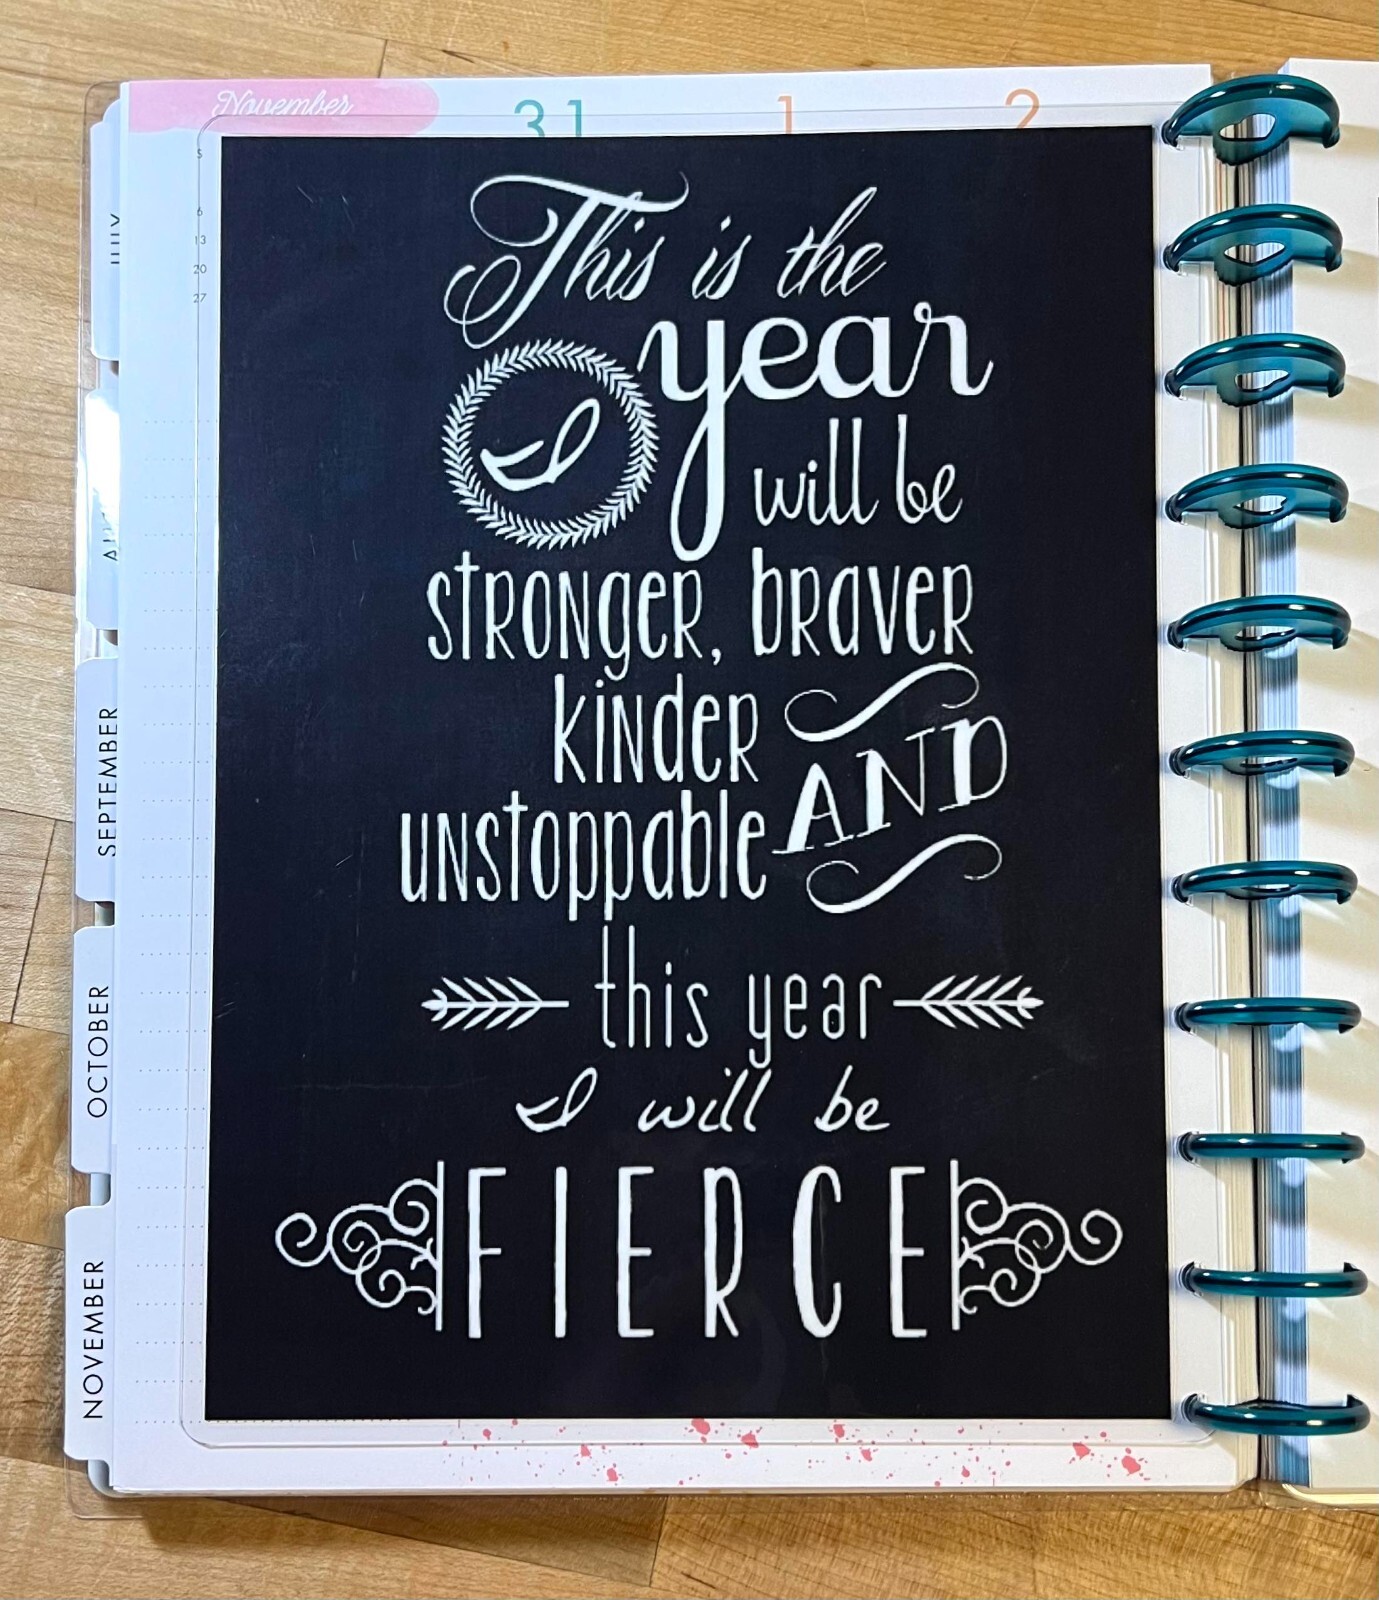 November 31 1 2
S
6
13
20
27
This is the
year
I will be
stronger, braver
kinder AND
unstoppable
this year
I will be
FIERCE
JULY
SEPTEMBER
OCTOBER
NOVEMBER